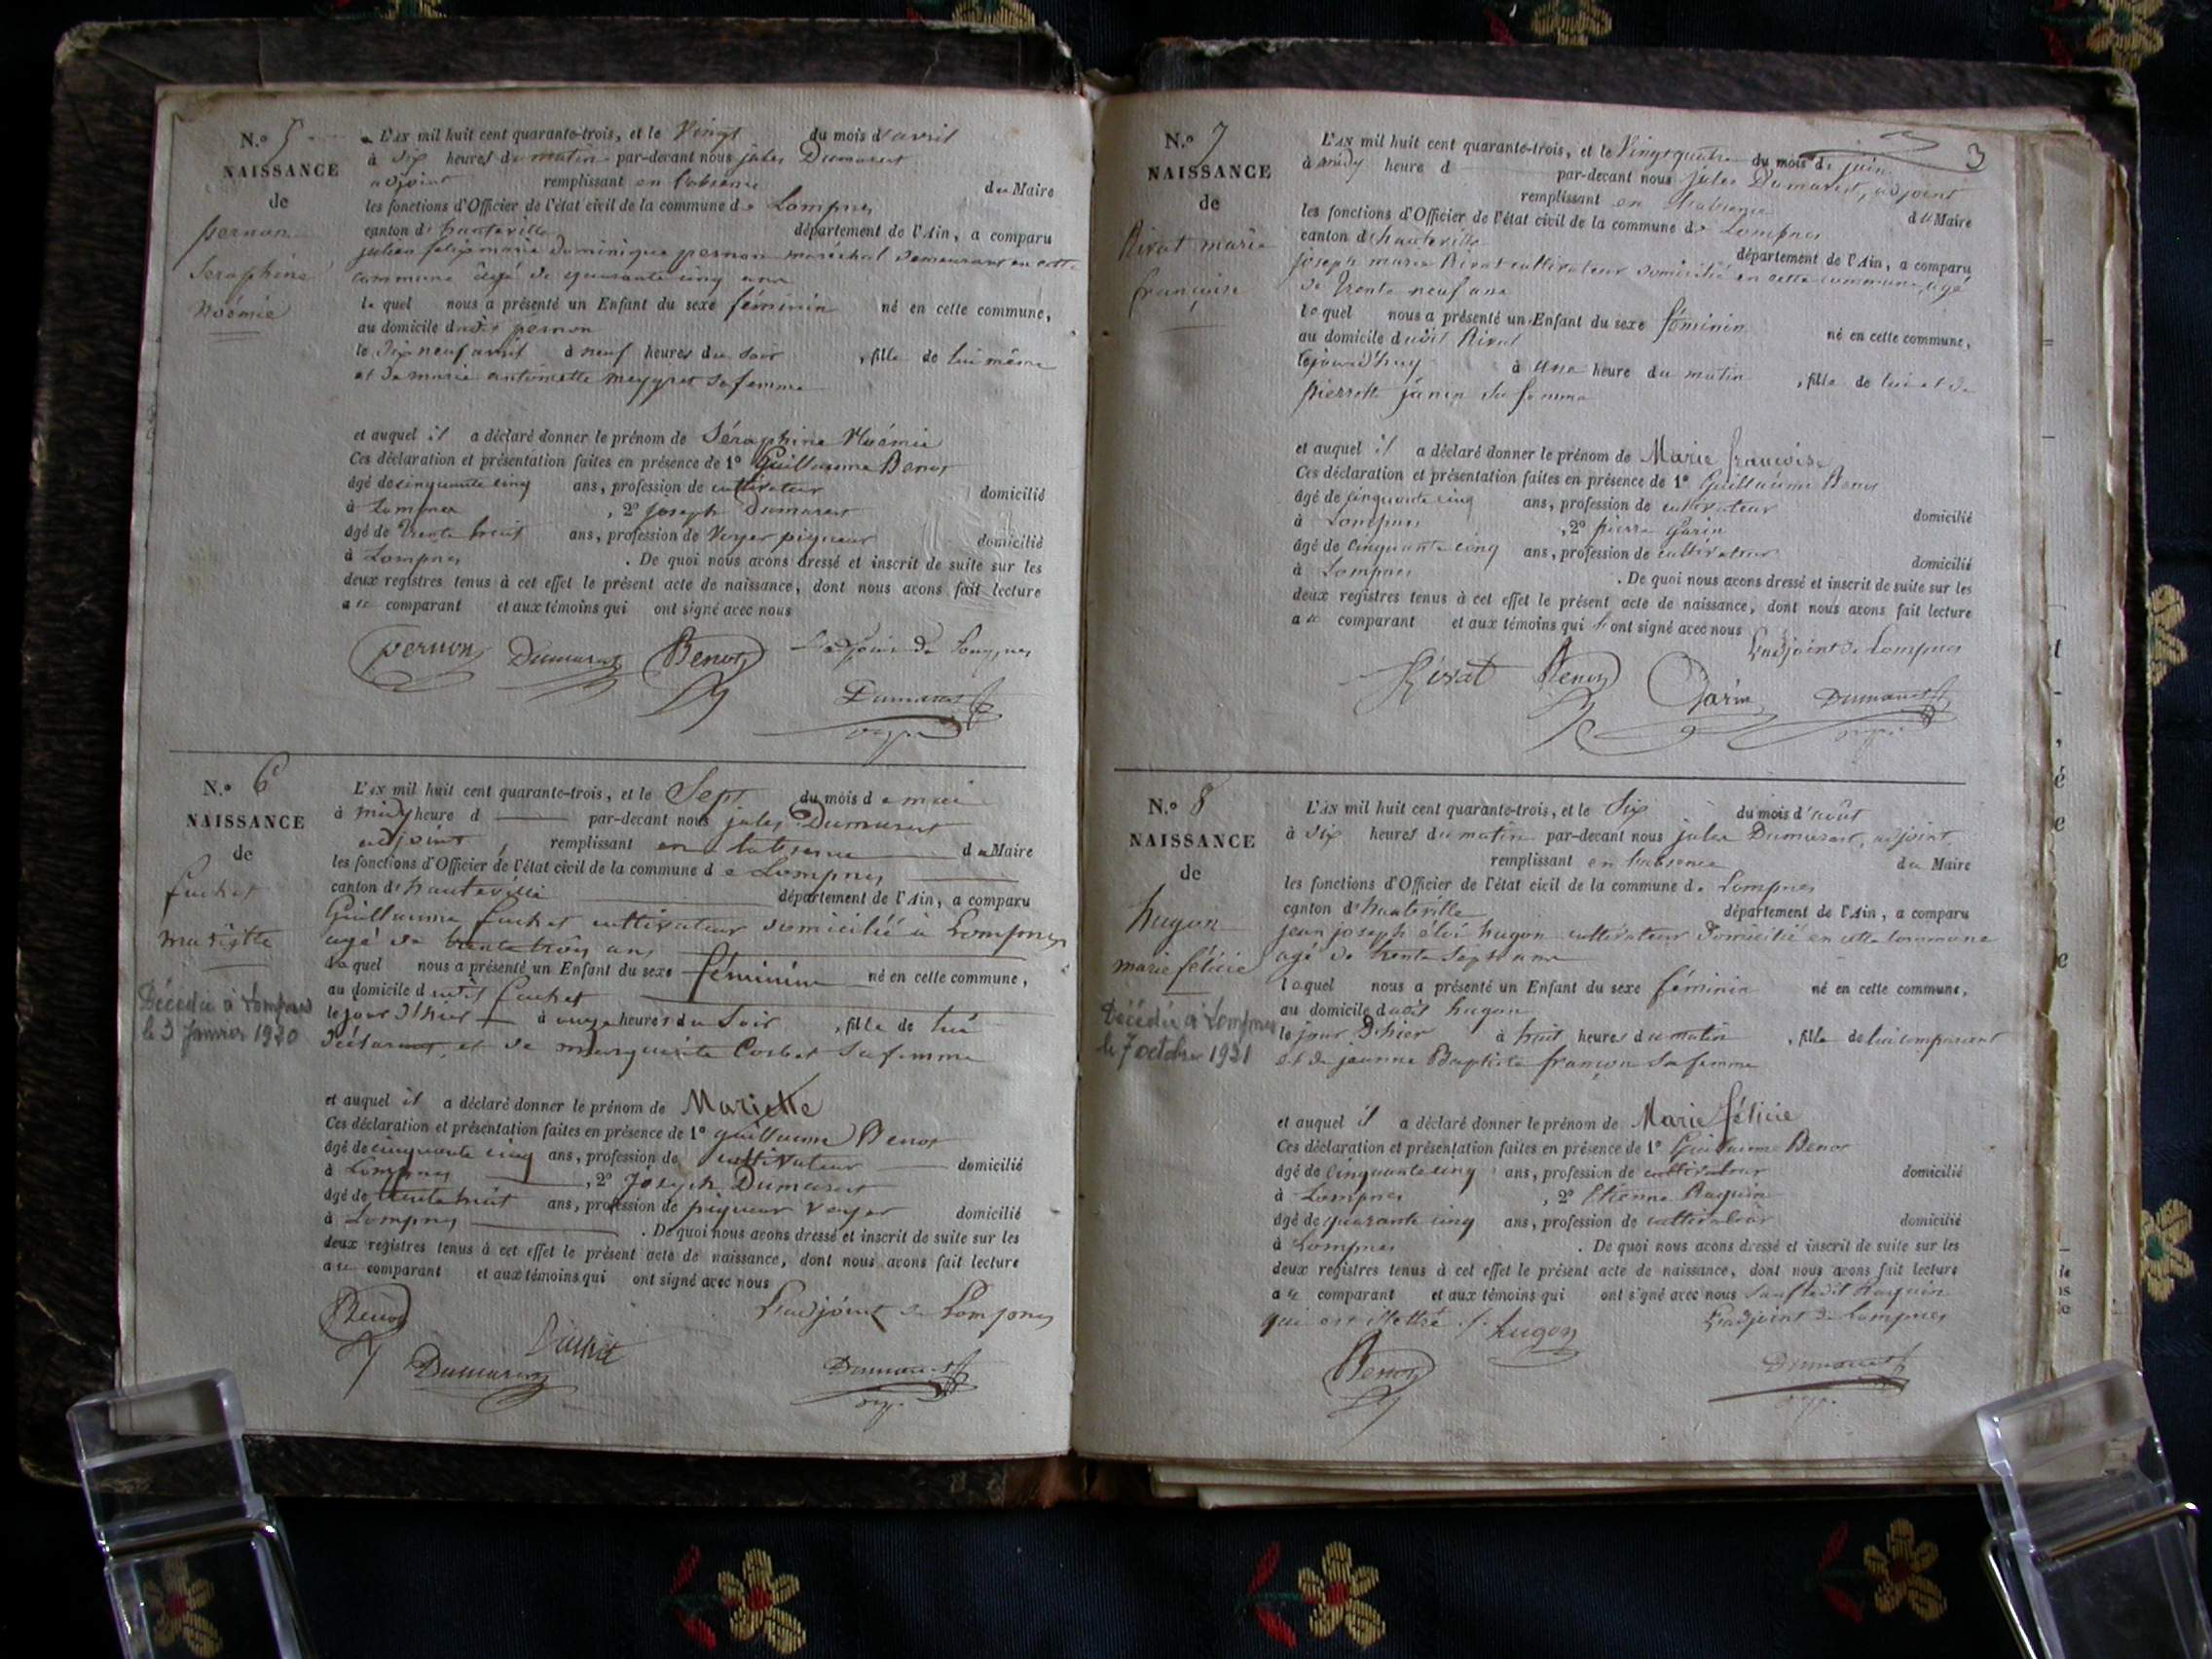 N.o 5
NAISSANCE
de
pernon
Seraphine
Noémie
L'AN mil huit cent quarante-trois, et le Vingt du mois d'avril
à dix heures du matin par-devant nous jules Dumarest
adjoint remplissant en l'absence du Maire
les fonctions d'Officier de l'état civil de la commune de Lompnes
canton d'hauteville département de l'Ain, a comparu
julien felix marie dominique pernon maréchal demeurant en cette
commune âgé de quarante cinq ans
lequel nous a présenté un Enfant du sexe féminin né en cette commune,
au domicile dudit pernon
le dix neuf avril à neuf heures du soir, fille de lui même
et de marie antoinette meygret sa femme
et auquel il a déclaré donner le prénom de Séraphine Noémie
Ces déclaration et présentation faites en présence de 1o Guillaume Benot
âgé de cinquante cinq ans, profession de cultivateur domicilié
à Lompnes, 2o joseph Dumarest
âgé de trente huit ans, profession de Voyer piqueur domicilié
à Lompnes. De quoi nous avons dressé et inscrit de suite sur les
deux registres tenus à cet effet le présent acte de naissance, dont nous avons fait lecture
au comparant et aux témoins qui ont signé avec nous
pernon Dumarest Benot L'adjoint de Lompnes
Dumarest
N.o 6
NAISSANCE
de
fuchet
mariette
Décédée à Lompnes
le 3 Janvier 1920
L'AN mil huit cent quarante-trois, et le Sept du mois de mai
à midy heure d par-devant nous jules Dumarest
adjoint, remplissant en l'absence du Maire
les fonctions d'Officier de l'état civil de la commune de Lompnes
canton d'hauteville département de l'Ain, a comparu
Guillaume fuchet cultivateur domicilié à Lompnes
agé de trente trois ans
lequel nous a présenté un Enfant du sexe féminin né en cette commune,
au domicile dudit fuchet
le jour d'hier à onze heures du Soir, fille de lui
déclarant, et de marguerite Corbet sa femme
et auquel il a déclaré donner le prénom de Mariette
Ces déclaration et présentation faites en présence de 1o guillaume Benot
âgé de cinquante cinq ans, profession de cultivateur domicilié
à Lompnes, 2o Joseph Dumarest
âgé de trente huit ans, profession de piqueur Voyer domicilié
à Lompnes. De quoi nous avons dressé et inscrit de suite sur les
deux registres tenus à cet effet le présent acte de naissance, dont nous avons fait lecture
au comparant et aux témoins qui ont signé avec nous
Benot L'adjoint de Lompnes
Dumarest Dumarest
3
N.o 7
NAISSANCE
de
Rivat marie
françoise
L'AN mil huit cent quarante-trois, et le Vingt quatre du mois de juin
à midy heure d par-devant nous jules Dumarest, adjoint
remplissant en l'absence du Maire
les fonctions d'Officier de l'état civil de la commune de Lompnes
canton d'hauteville département de l'Ain, a comparu
joseph marie Rivat cultivateur domicilié en cette commune, agé
de trente neuf ans
lequel nous a présenté un Enfant du sexe féminin né en cette commune,
au domicile dudit Rivat
lejourd'huy à une heure du matin, fille de lui et de
pierrette janin sa femme
et auquel il a déclaré donner le prénom de Marie françoise
Ces déclaration et présentation faites en présence de 1o Guillaume Benot
âgé de cinquante cinq ans, profession de cultivateur domicilié
à Lompnes, 2o pierre Garin
âgé de cinquante cinq ans, profession de cultivateur domicilié
à Lompnes. De quoi nous avons dressé et inscrit de suite sur les
deux registres tenus à cet effet le présent acte de naissance, dont nous avons fait lecture
au comparant et aux témoins qui ont signé avec nous
L'adjoint de Lompnes
Rivat Benot Garin Dumarest
N.o 8
NAISSANCE
de
hugon
marie félicie
Décédée à Lompnes
le 7 octobre 1921
L'AN mil huit cent quarante-trois, et le Six du mois d'août
à dix heures du matin par-devant nous jules Dumarest, adjoint
remplissant en l'absence du Maire
les fonctions d'Officier de l'état civil de la commune de Lompnes
canton d'hauteville département de l'Ain, a comparu
jean joseph éloi hugon cultivateur domicilié en cette commune
agé de trente sept ans
lequel nous a présenté un Enfant du sexe féminin né en cette commune,
au domicile dudit hugon
le jour d'hier à huit heures du matin, fille de lui comparant
et de jeanne Baptiste françon sa femme
et auquel il a déclaré donner le prénom de Marie félicie
Ces déclaration et présentation faites en présence de 1o Guillaume Benot
âgé de cinquante cinq ans, profession de cultivateur domicilié
à Lompnes, 2o Etienne Raquin
âgé de quarante cinq ans, profession de cultivateur domicilié
à Lompnes. De quoi nous avons dressé et inscrit de suite sur les
deux registres tenus à cet effet le présent acte de naissance, dont nous avons fait lecture
au comparant et aux témoins qui ont signé avec nous sauf ledit Raquin
qui est illettré hugon L'adjoint de Lompnes
Benot Dumarest